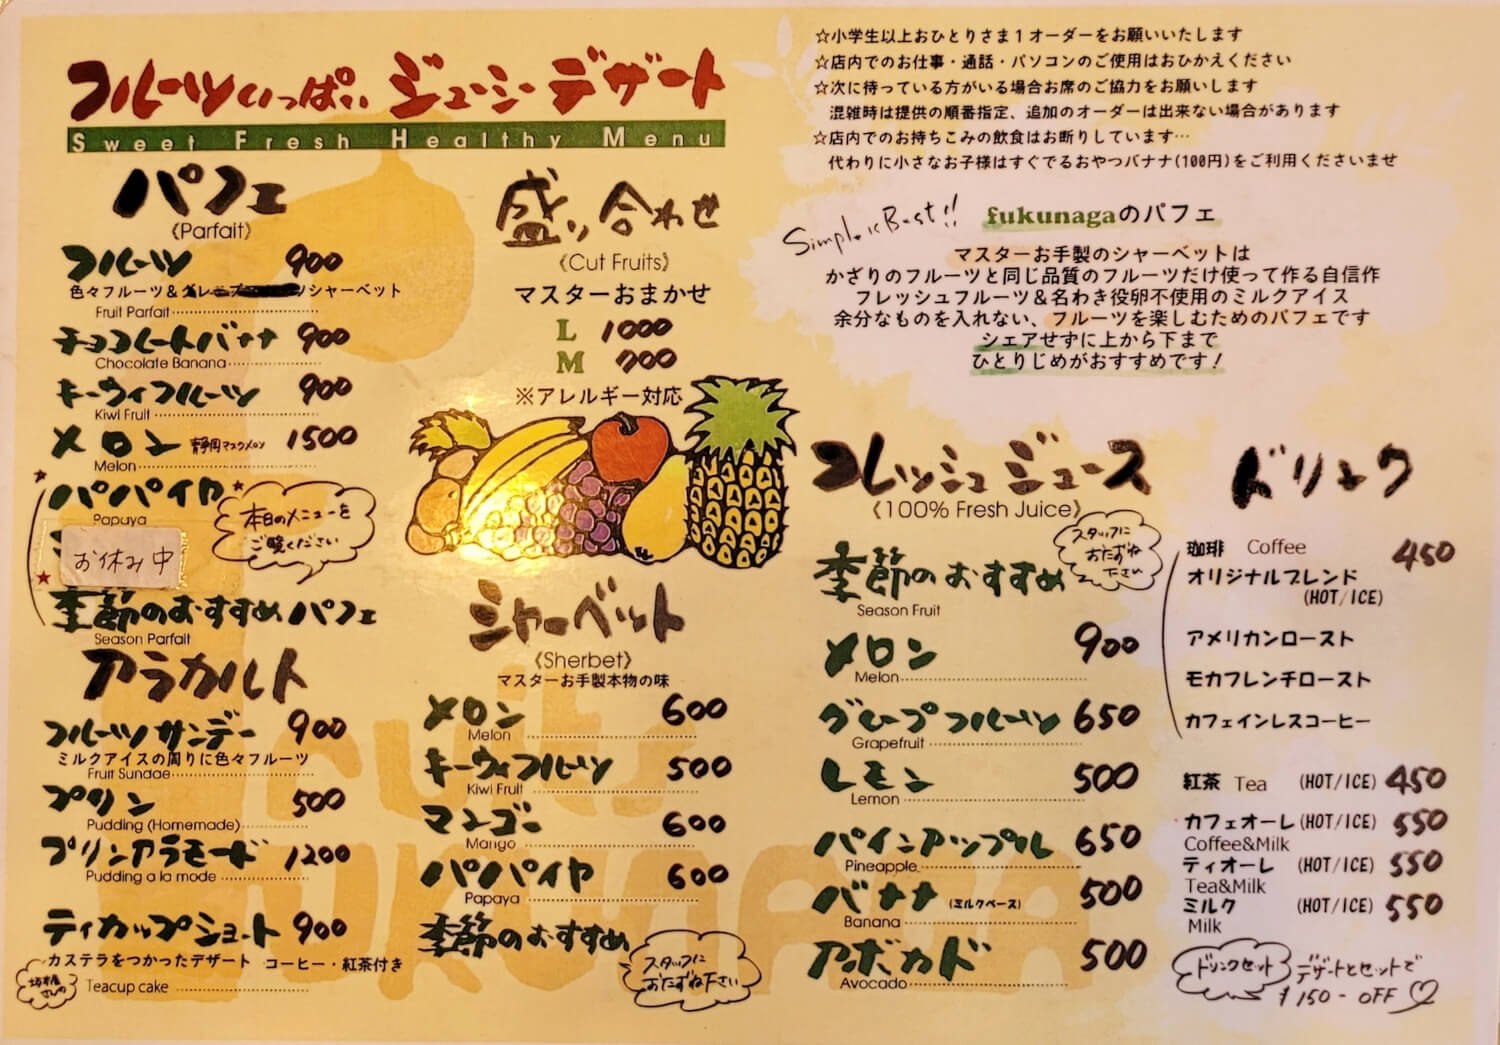 フルーツいっぱい ジューシーデザート
Sweet Fresh Healthy Menu
パフェ
《Parfait》
フルーツ 900
色々フルーツ&グレープ シャーベット
Fruit Parfait
チョコレートバナナ 900
Chocolate Banana
キーウィフルーツ 900
Kiwi Fruit
メロン 静岡マスクメロン 1500
Melon
★パパイヤ★
Papaya
お休み中
本日のメニューを
ご覧ください
★
季節のおすすめパフェ
Season Parfait
アラカルト
フルーツサンデー 900
ミルクアイスの周りに色々フルーツ
Fruit Sundae
プリン 500
Pudding (Homemade)
プリンアラモード 1200
Pudding a la mode
ティカップショート 900
カステラをつかったデザート コーヒー・紅茶付き
Teacup cake
盛り合わせ
《Cut Fruits》
マスターおまかせ
L 1000
M 700
※アレルギー対応
シャーベット
《Sherbet》
マスターお手製本物の味
メロン 600
Melon
キーウィフルーツ 500
Kiwi Fruit
マンゴー 600
Mango
パパイヤ 600
Papaya
季節のおすすめ
スタッフに
おたずね下さい
☆小学生以上おひとりさま1オーダーをお願いいたします
☆店内でのお仕事・通話・パソコンのご使用はおひかえください
☆次に待っている方がいる場合お席のご協力をお願いします
混雑時は提供の順番指定、追加のオーダーは出来ない場合があります
☆店内でのお持ちこみの飲食はお断りしています…
代わりに小さなお子様はすぐでるおやつバナナ(100円)をご利用くださいませ
Simple is Best!!
fukunagaのパフェ
マスターお手製のシャーベットは
かざりのフルーツと同じ品質のフルーツだけ使って作る自信作
フレッシュフルーツ&名わき役卵不使用のミルクアイス
余分なものを入れない、フルーツを楽しむためのパフェです
シェアせずに上から下まで
ひとりじめがおすすめです!
フレッシュジュース
《100% Fresh Juice》
季節のおすすめ
Season Fruit
スタッフに
おたずね
下さい
メロン 900
Melon
グレープフルーツ 650
Grapefruit
レモン 500
Lemon
パインアップル 650
Pineapple
バナナ (ミルクベース) 500
Banana
アボカド 500
Avocado
ドリンク
珈琲 Coffee 450
オリジナルブレンド
(HOT/ICE)
アメリカンロースト
モカフレンチロースト
カフェインレスコーヒー
紅茶 Tea (HOT/ICE) 450
カフェオーレ(HOT/ICE) 550
Coffee&Milk
ティオーレ (HOT/ICE) 550
Tea&Milk
ミルク (HOT/ICE) 550
Milk
ドリンクセット
デザートとセットで
¥150-OFF♡